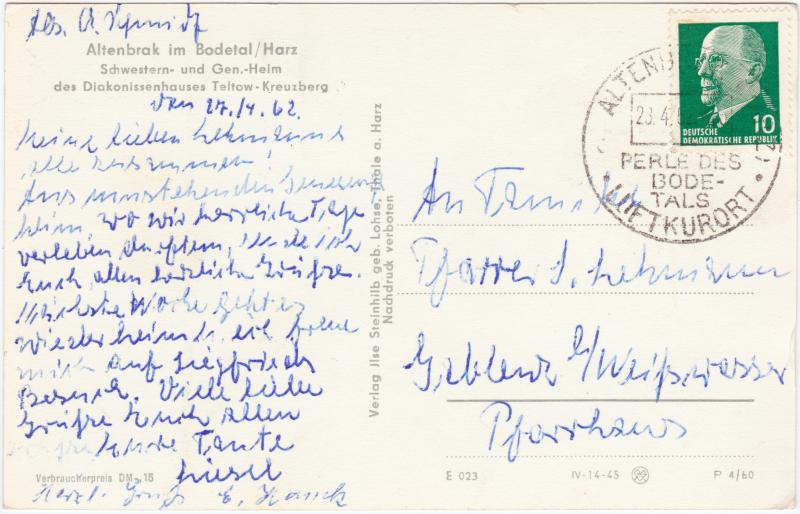 Abs. A. Schmidt
Altenbrak im Bodetal/Harz
Schwestern- und Gen.-Heim
des Diakonissenhauses Teltow-Kreuzberg
den 27./4. 62.
Meine lieben Lehmanns
alle zusammen!
Aus umstehenden Genesungs
heim, wo wir herrliche Tage
verleben durften, sende ich
Euch allen herzliche Grüße.
Nächste Woche geht es
wieder heim u. ich freue
mich auf Siegfrieds
Besuch. Viele liebe
Grüße Euch Allen
Eure Tante
Liesel
Herzl. Gruß E.
Verbraucherpreis DM -,15
Verlag Ilse Steinhilb geb. Lohse, Thale a. Harz
Nachdruck verboten
ALTENB
28.4.62
PERLE DES
BODE-
TALS
LUFTKURORT
DEUTSCHE
DEMOKRATISCHE REPUBLIK
10
An Familie
Pfarrer S. Lehmann
Gablenz b/Weißwasser
Pfarrhaus
E 023
IV-14-45
P 4/60